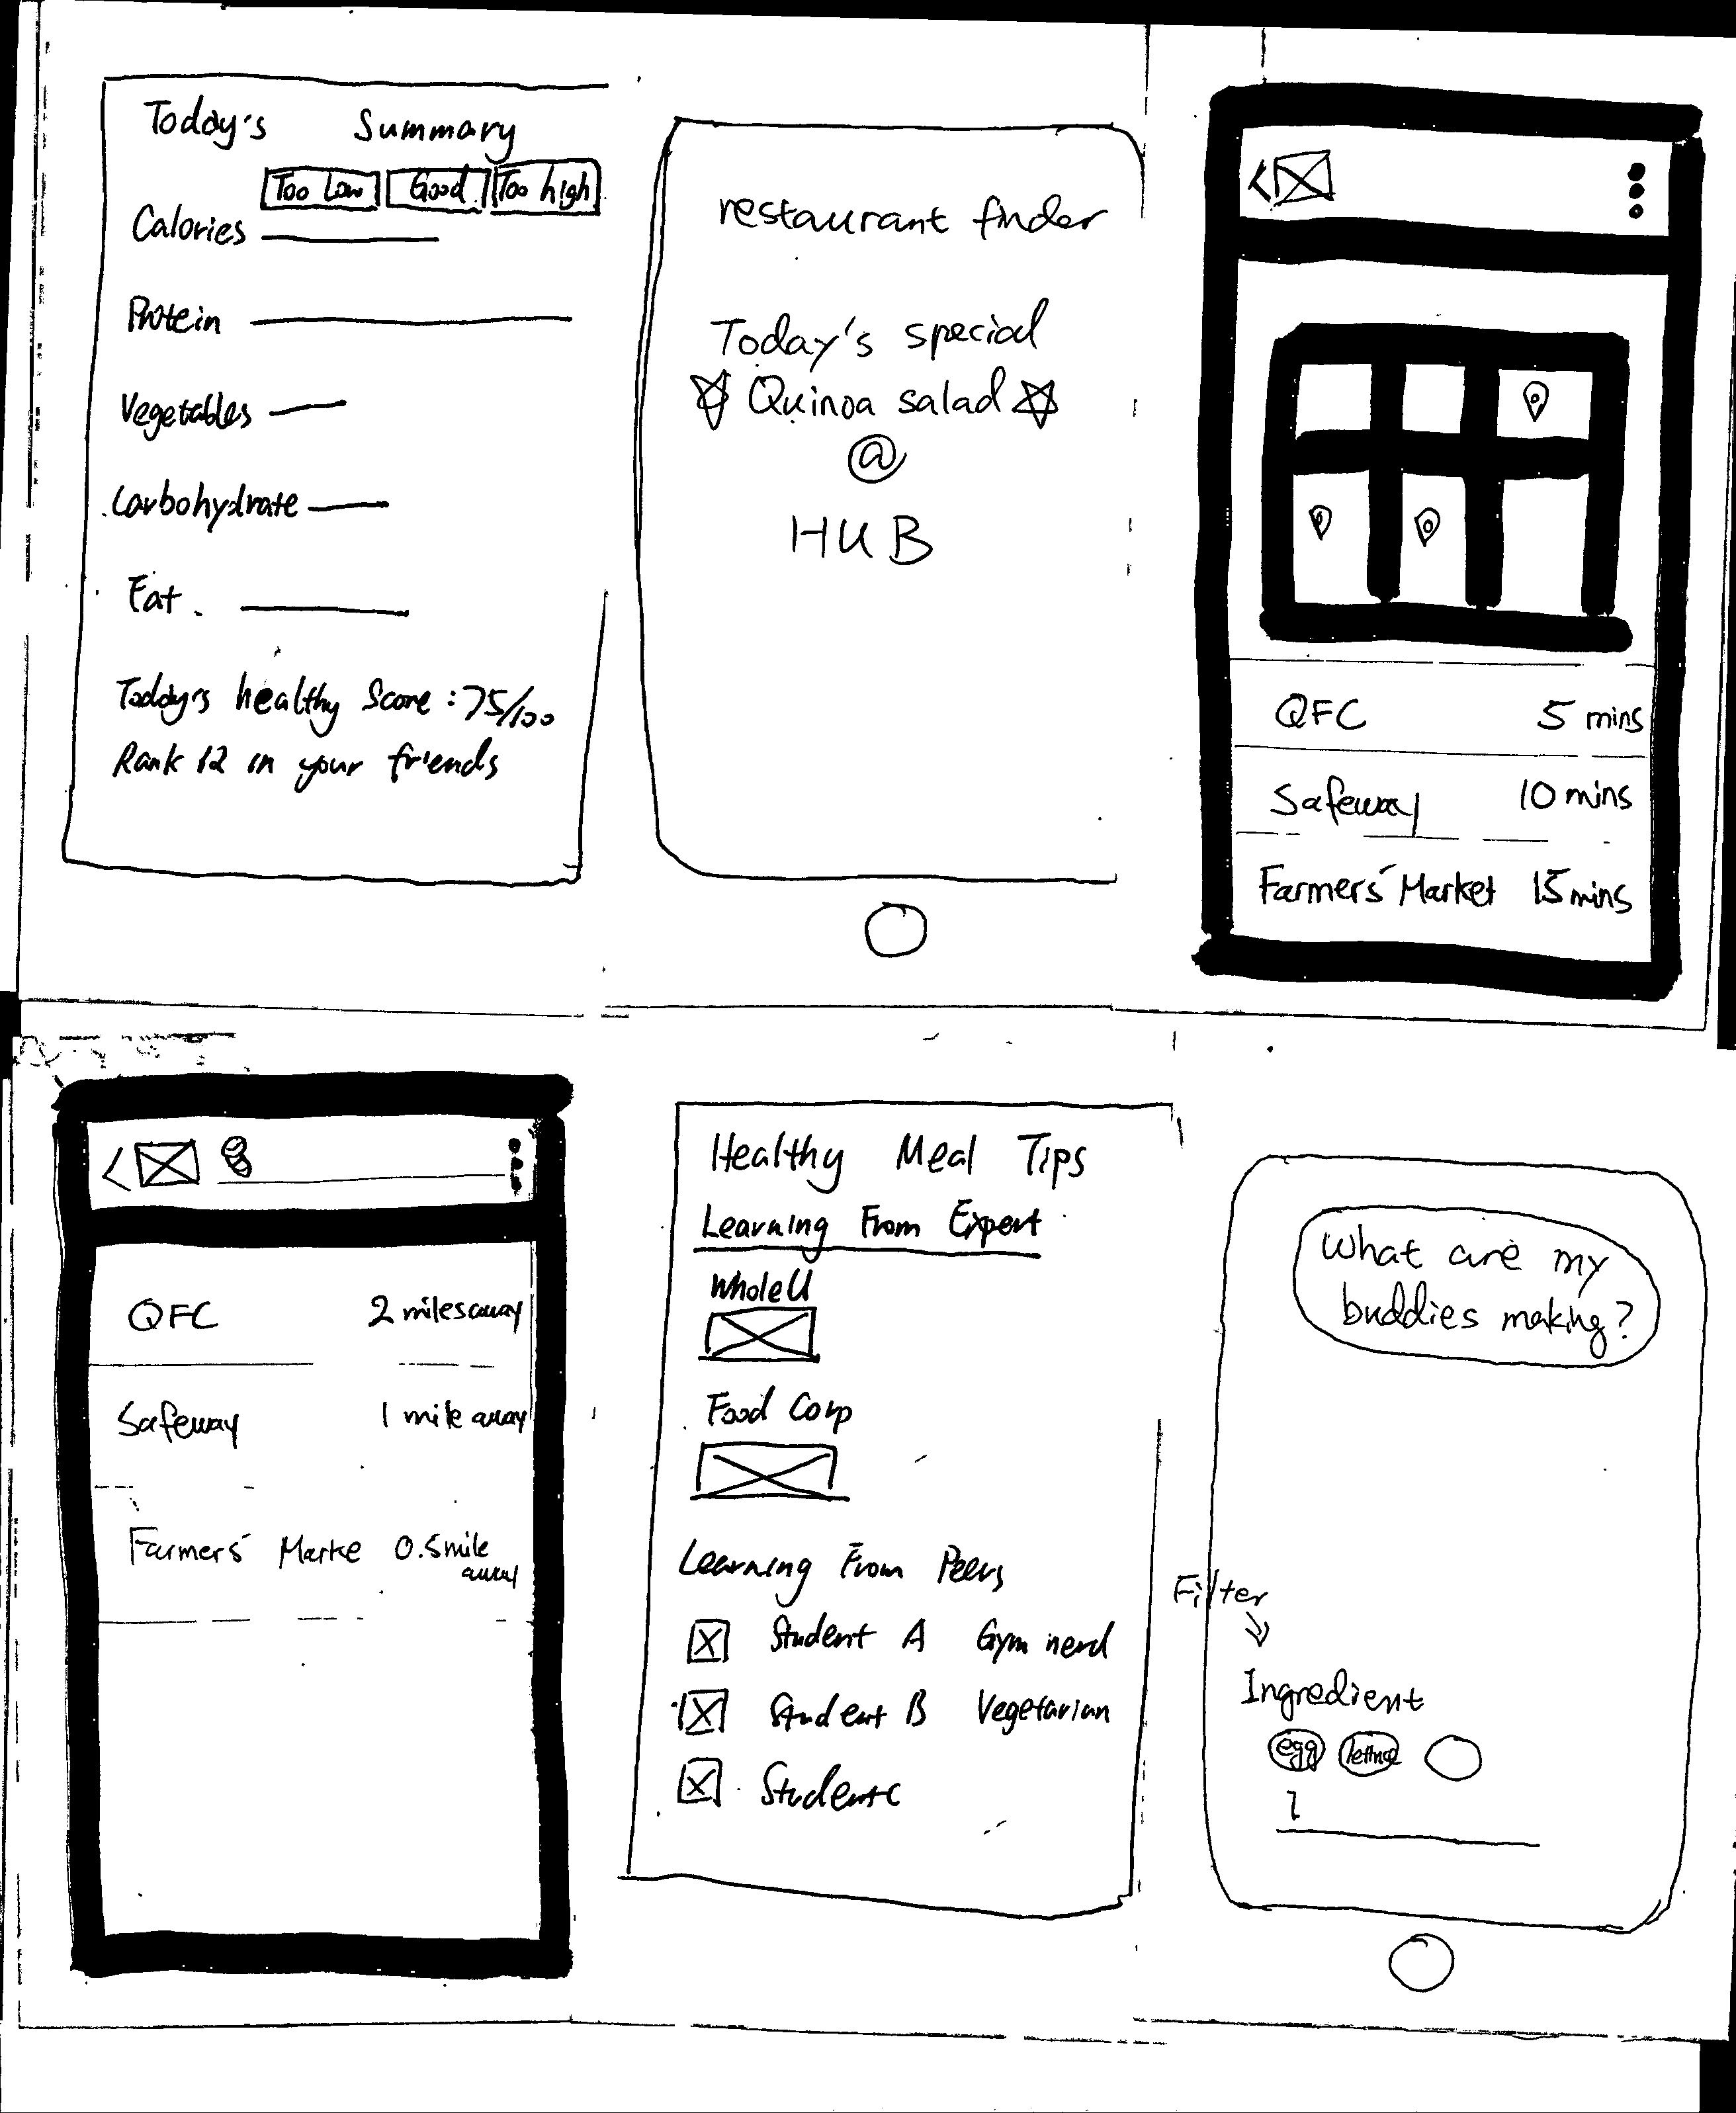 Today's Summary
Too Low Good Too high
Calories
Protein
Vegetables
Carbohydrate
Fat
Today's healthy Score : 75/100
Rank 12 in your friends
restaurant finder
Today's special
Quinoa salad
@
HUB
QFC 5 mins
Safeway 10 mins
Farmers' Market 15 mins
QFC 2 miles away
Safeway 1 mile away
Farmers' Marke 0.5 mile
away
Healthy Meal Tips
Learning From Expert
Whole U
Food Corp
Learning From Peers
Student A Gym nerd
Student B Vegetarian
Student C
What are my
buddies making?
Filter
Ingredient
egg lettuce